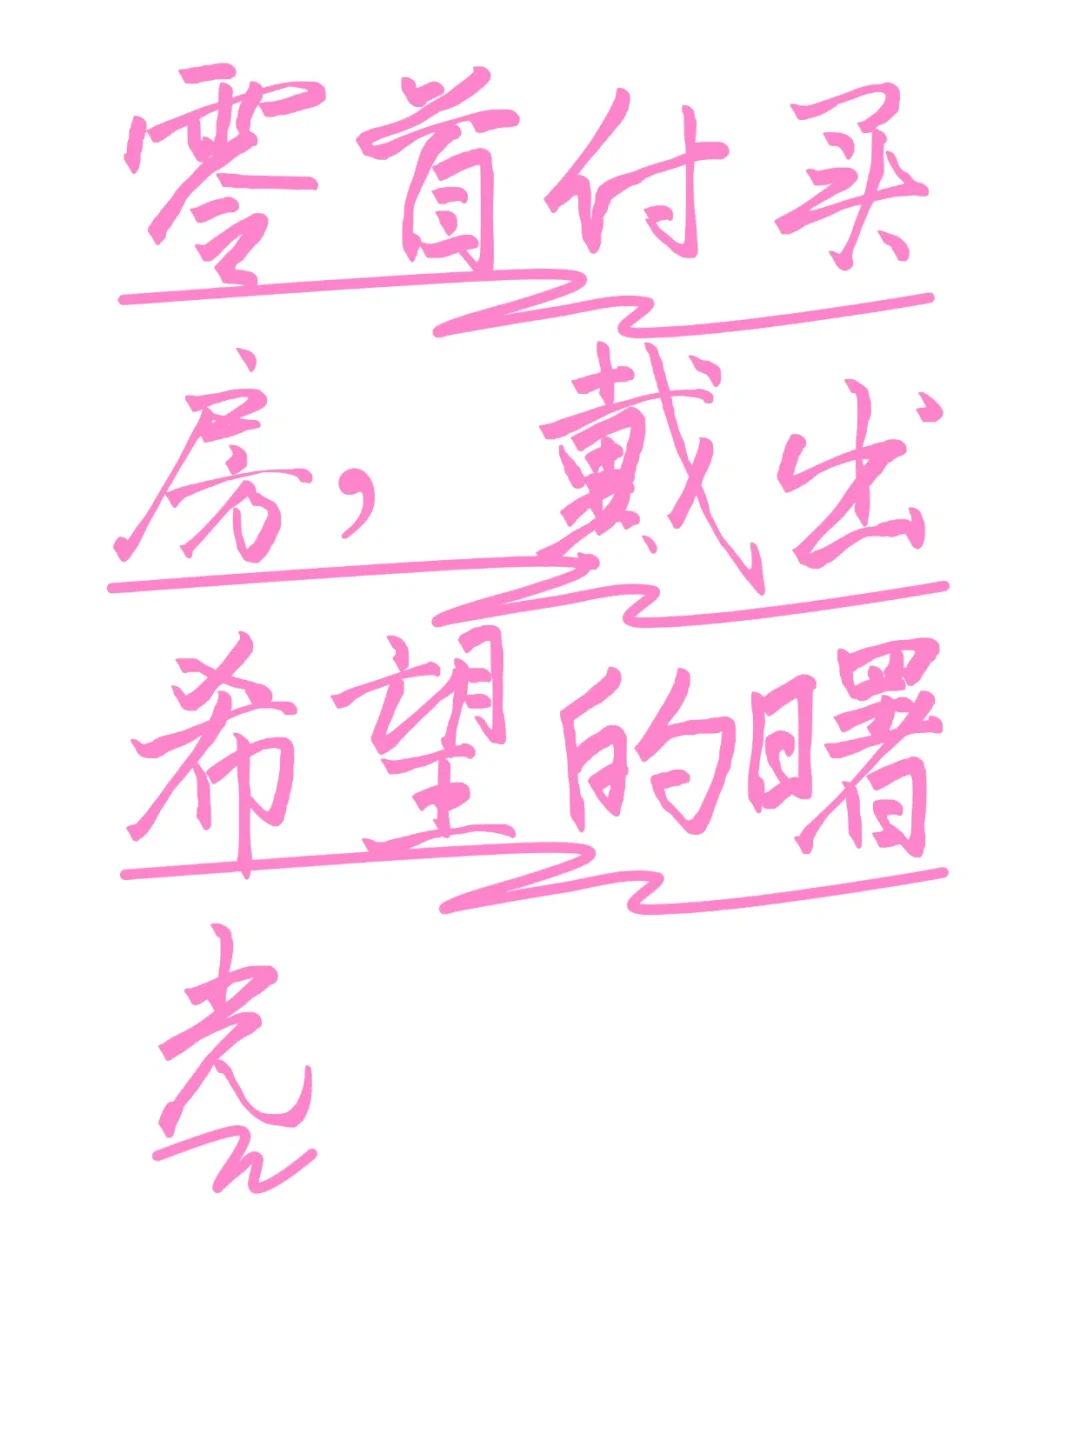 零首付买
房，戴出
希望的曙
光